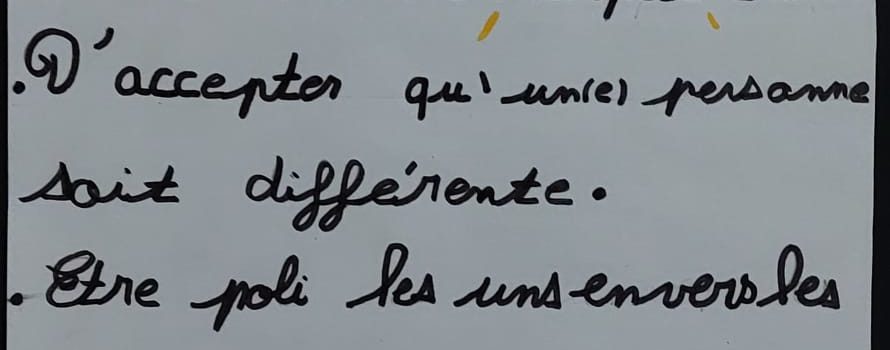 .D'accepter qu'un(e) personne
soit différente.
. Etre poli les uns envers les